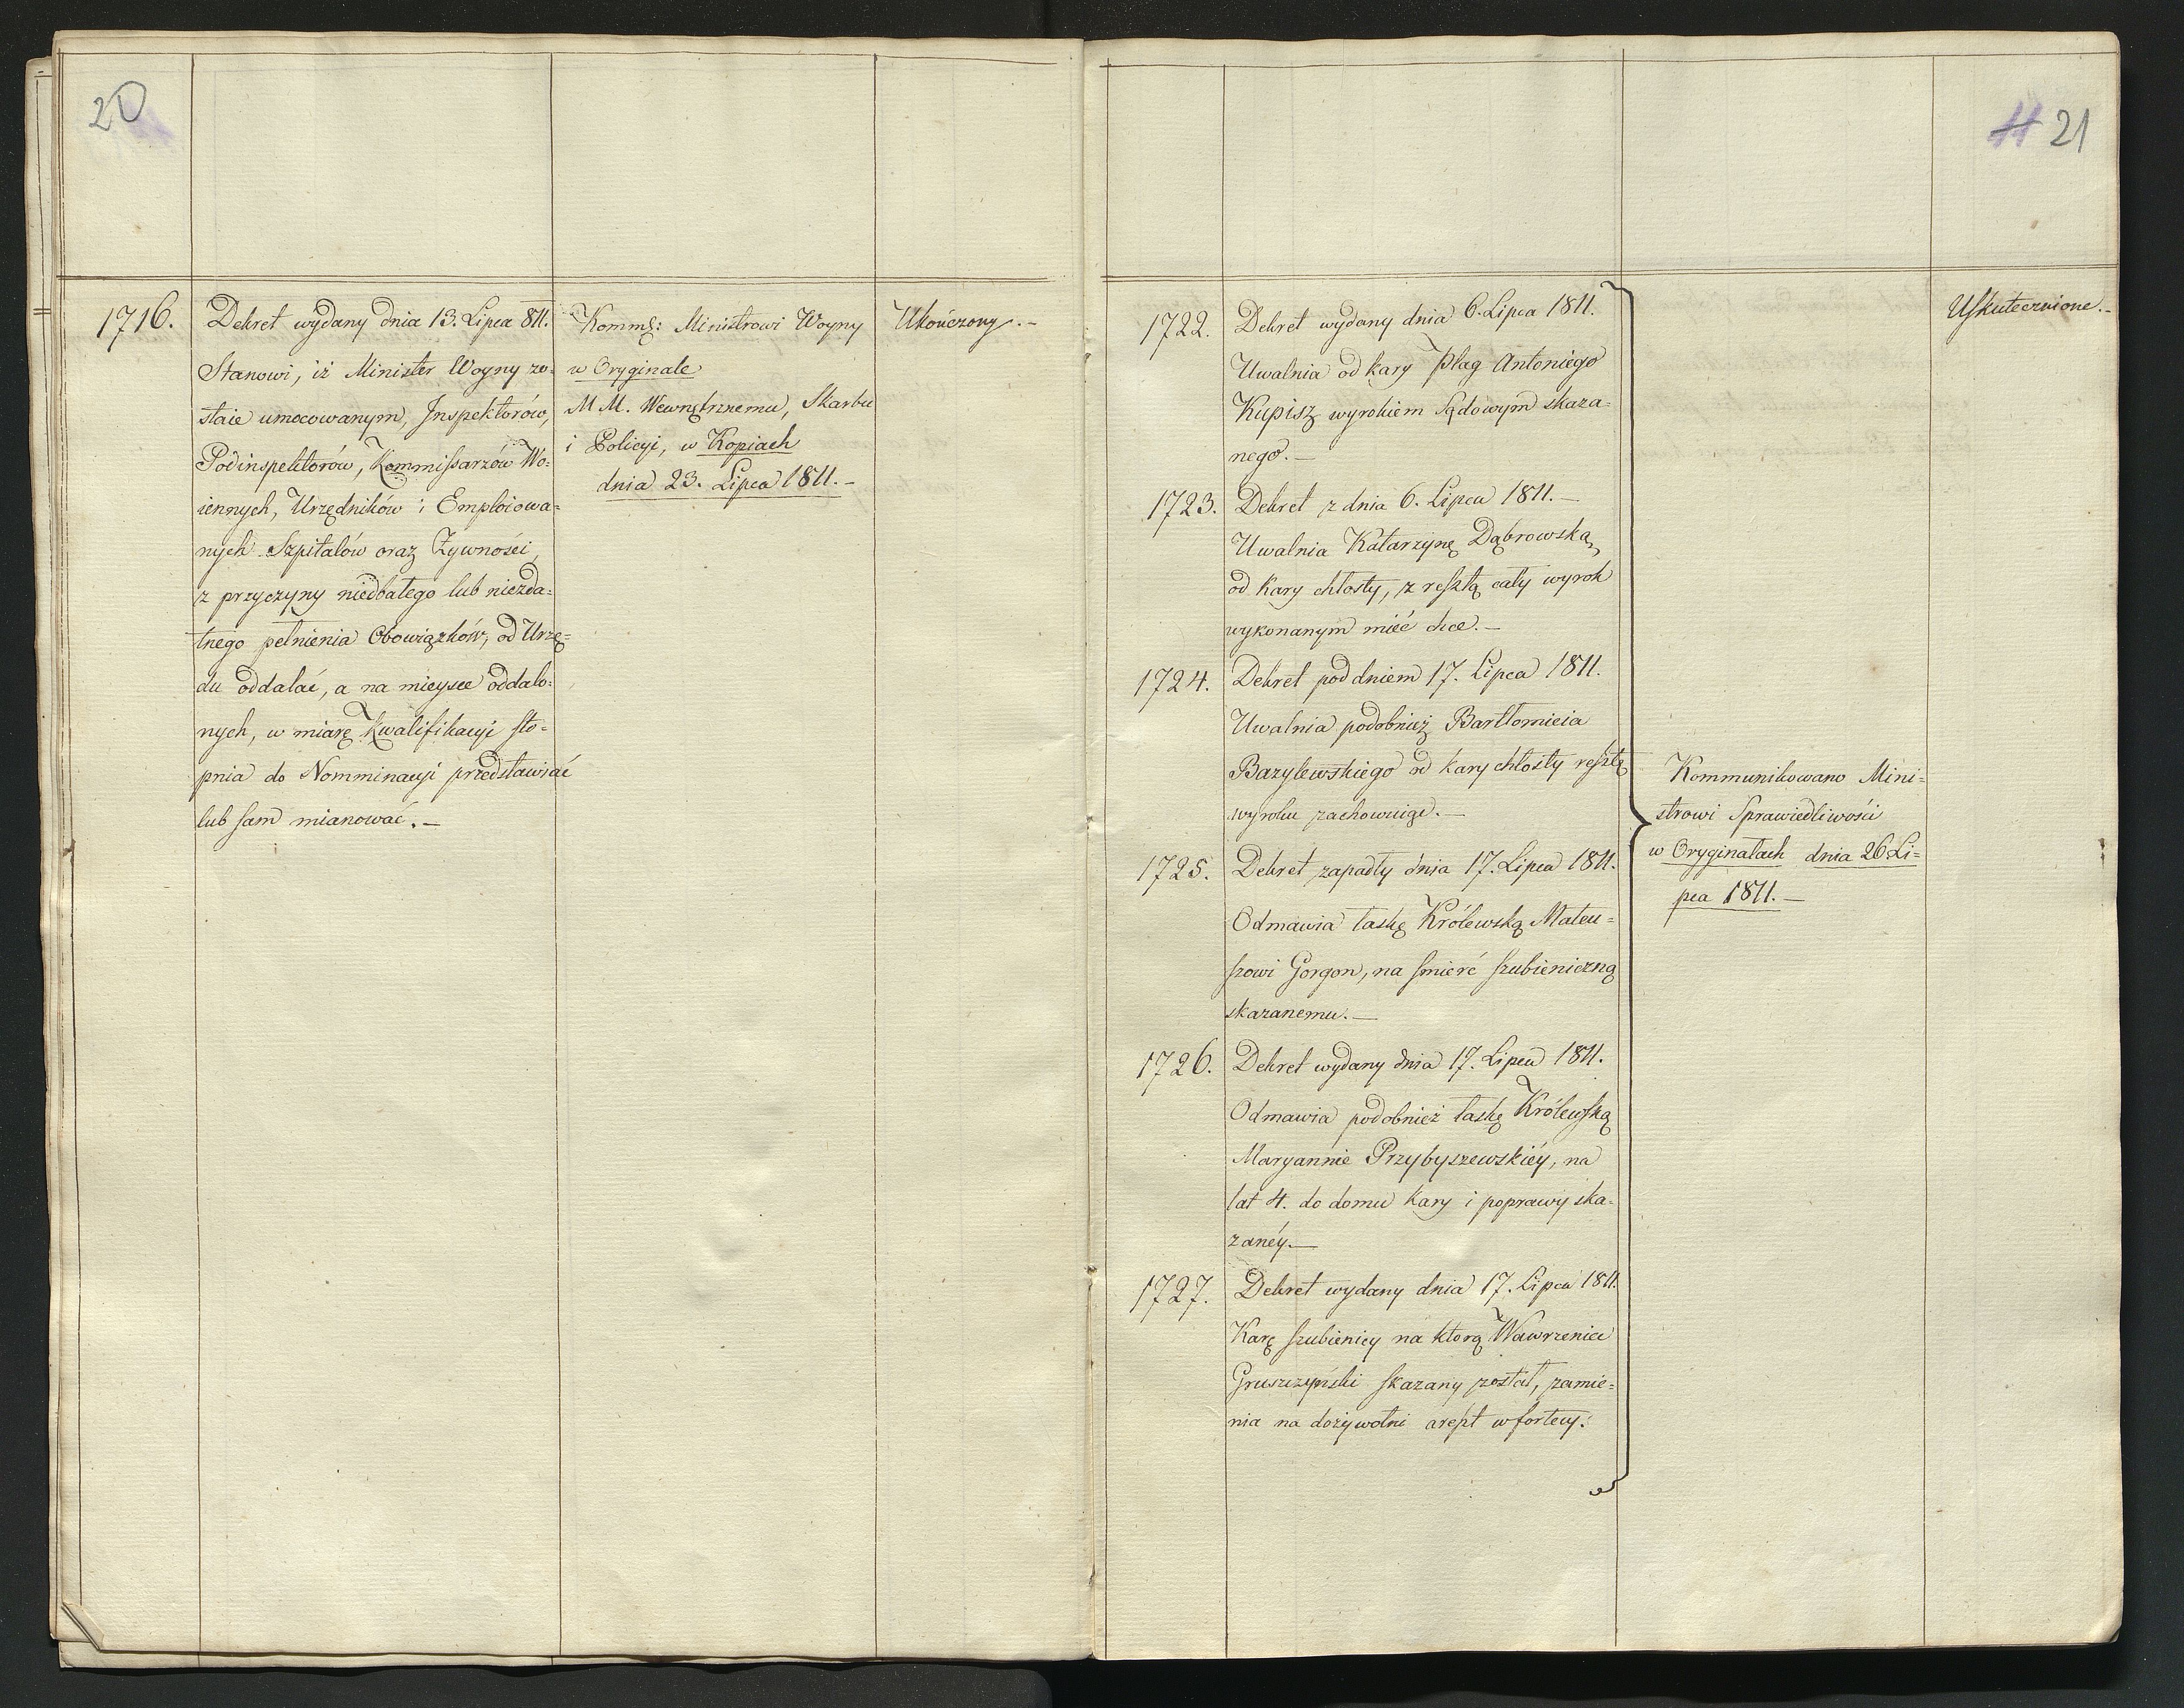 20
1716.
Dekret wydany dnia 13. Lipca 811.
Stanowi, iż Minister Woyny zo=
staie umocowanym, Inspektorów,
Podinspektorów, Kommissarzów Wo=
iennych, Urzędników i Emploiowa=
nych Szpitalów oraz Żywności,
z przyczyny niedbałego lub niezda=
tnego pełnienia Obowiązków, od Urzę=
du oddalać, a na mieysce oddalo=
nych, w miarę Kwalifikacyi sto=
pnia do Nomminacyi przedstawiać
lub sam mianować. —
Komms: Ministrowi Woyny
w Oryginale
M M. Wewnętrznemu, Skarbu
i Policyi, w Kopiach
dnia 23. Lipca 1811. —
Ukończony. —
21
1722.
Dekret wydany dnia 6. Lipca 1811.
Uwalnia od kary Plag Antoniego
Kupisz wyrokiem Sądowym skaza=
nego. —
1723.
Dekret z dnia 6. Lipca 1811. —
Uwalnia Katarzynę Dąbrowską,
od Kary chłosty, z resztą cały wyrok
wykonanym mieć chce. —
1724.
Dekret pod dniem 17. Lipca 1811.
Uwalnia podobnież Bartłomieia
Bazylewskiego od kary chłosty resztę
wyroku zachowuiąc. —
1725.
Dekret zapadły dnia 17. Lipca 1811.
Odmawia łaskę Królewską Mateu=
szowi Gorgon, na smierć szubieniczną
skazanemu. —
1726.
Dekret wydany dnia 17. Lipca 1811.
Odmawia podobnież łaskę Królewską
Maryannie Przybyszewskiéy, na
lat 4. do domu Kary i poprawy ska=
zanéy. —
1727.
Dekret wydany dnia 17. Lipca 1811.
Karę szubienicy na którą Wawrzeniec
Gruszczyński skazany został, zamie=
nia na dożywotni areszt w fortecy.
Kommunikowano Mini=
strowi Sprawiedliwości
w Oryginałach dnia 26. Li=
pca 1811. —
Uskutecznione. —